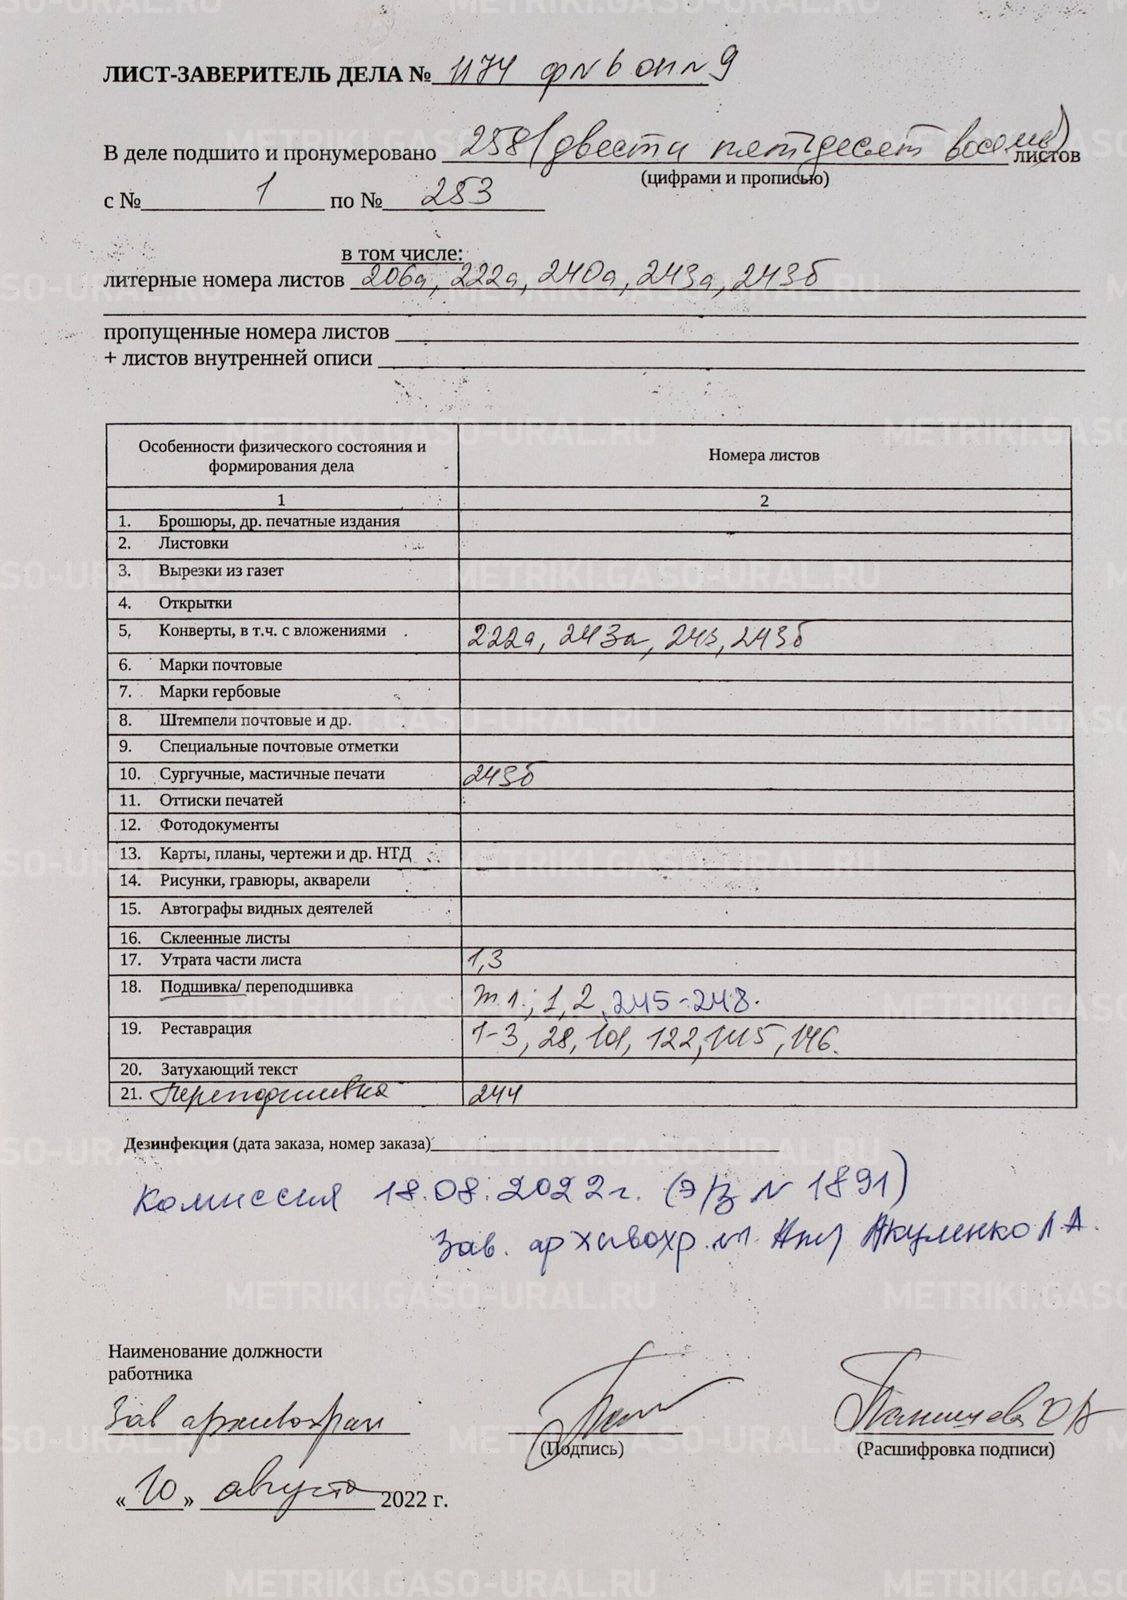 ЛИСТ-ЗАВЕРИТЕЛЬ ДЕЛА № 1174 ф№6 оп№9
В деле подшито и пронумеровано 258 (двести пятьдесят восемь) листов
(цифрами и прописью)
с № 1 по № 253
в том числе:
литерные номера листов 206а, 222а, 240а, 243а, 243б
пропущенные номера листов
+ листов внутренней описи
Особенности физического состояния и формирования дела Номера листов
1 2
1. Брошюры, др. печатные издания
2. Листовки
3. Вырезки из газет
4. Открытки
5, Конверты, в т.ч. с вложениями 222а, 243а, 243, 243б
6. Марки почтовые
7. Марки гербовые
8. Штемпели почтовые и др.
9. Специальные почтовые отметки
10. Сургучные, мастичные печати 243б
11. Оттиски печатей
12. Фотодокументы
13. Карты, планы, чертежи и др. НТД
14. Рисунки, гравюры, акварели
15. Автографы видных деятелей
16. Склеенные листы
17. Утрата части листа 1,3
18. Подшивка/ переподшивка т.л., 1, 2, 245-248.
19. Реставрация 1-3, 28, 101, 122, 145, 146.
20. Затухающий текст
21. Переподшивка 244
Дезинфекция (дата заказа, номер заказа)
Комиссия 18.08.2022г. (э/з № 1891)
Зав. архивохр. №1 Акуленко Л.А.
Наименование должности
работника
Зав архивохран
(Подпись) (Расшифровка подписи)
«10» августа 2022 г.
METRIKI.GASO-URAL.RU